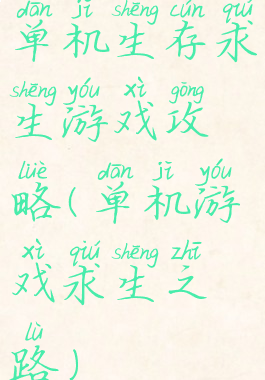 dān jī shēng cún qiú
单机生存求
shēng yóu xì gōng
生游戏攻
lüè dān jī yóu
略(单机游
xì qiú shēng zhī
戏求生之
lù
路)